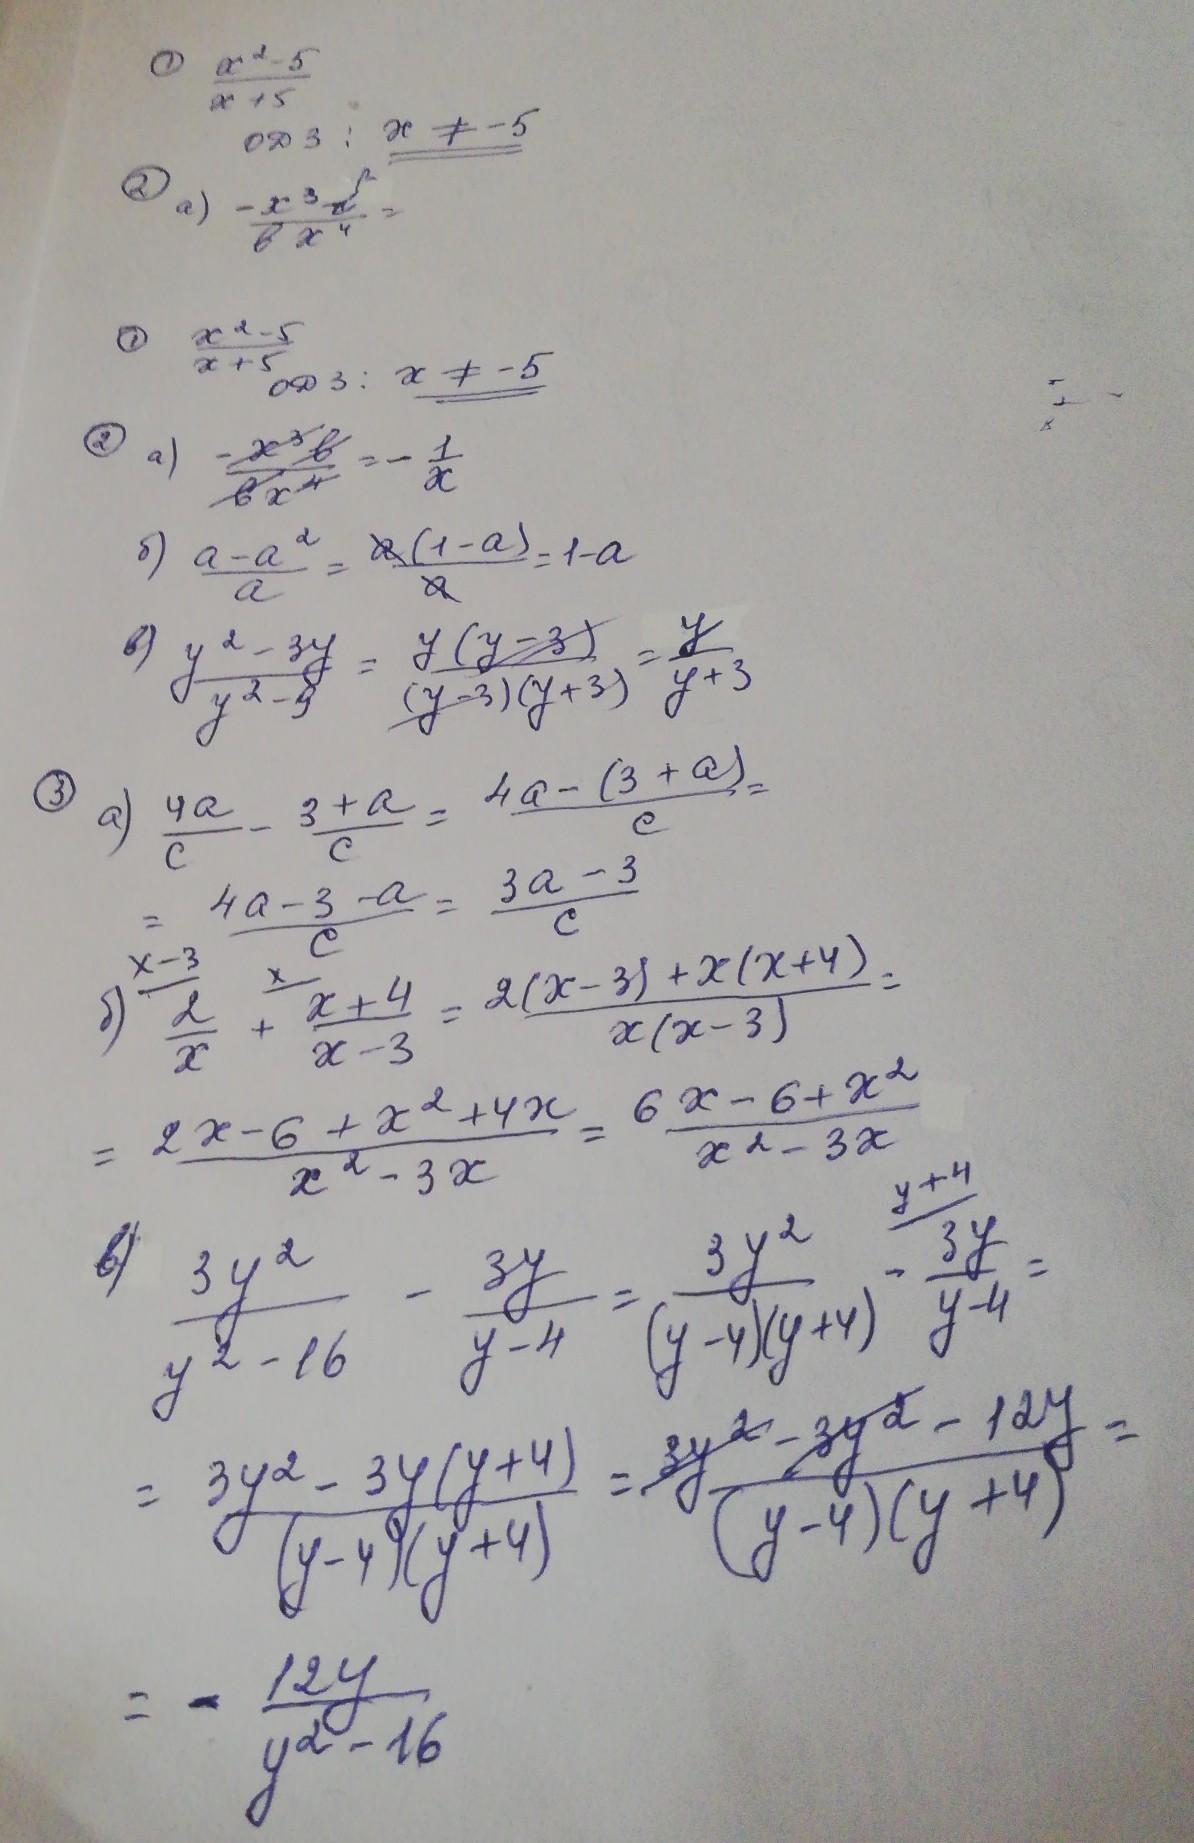 ① x²-5 / x+5
ОДЗ : x ≠ -5
② а) -x³ / вx⁴ =
① x²-5 / x+5
ОДЗ : x ≠ -5
② а) -x³в / вx⁴ = - 1/x
б) a-a² / a = a(1-a) / a = 1-a
в) y²-3y / y²-9 = y(y-3) / (y-3)(y+3) = y / y+3
③ а) 4a/c - 3+a / c = 4a-(3+a) / c =
= 4a-3-a / c = 3a-3 / c
x-3 x
б) 2/x + x+4 / x-3 = 2(x-3)+x(x+4) / x(x-3) =
= 2x-6+x²+4x / x²-3x = 6x-6+x² / x²-3x
y+4
в) 3y² / y²-16 - 3y / y-4 = 3y² / (y-4)(y+4) - 3y / y-4 =
= 3y²-3y(y+4) / (y-4)(y+4) = 3y²-3y²-12y / (y-4)(y+4) =
= - 12y / y²-16